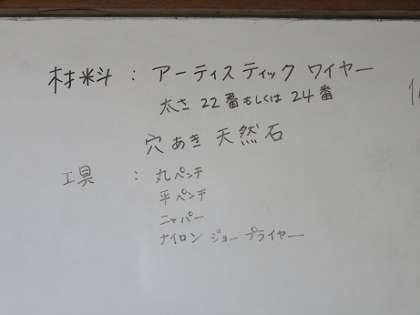 材料 : アーティスティック ワイヤー
太さ 22番もしくは 24番
穴あき 天然石
工具 : 丸ペンチ
平ペンチ
ニッパー
ナイロン ジョー プライヤー